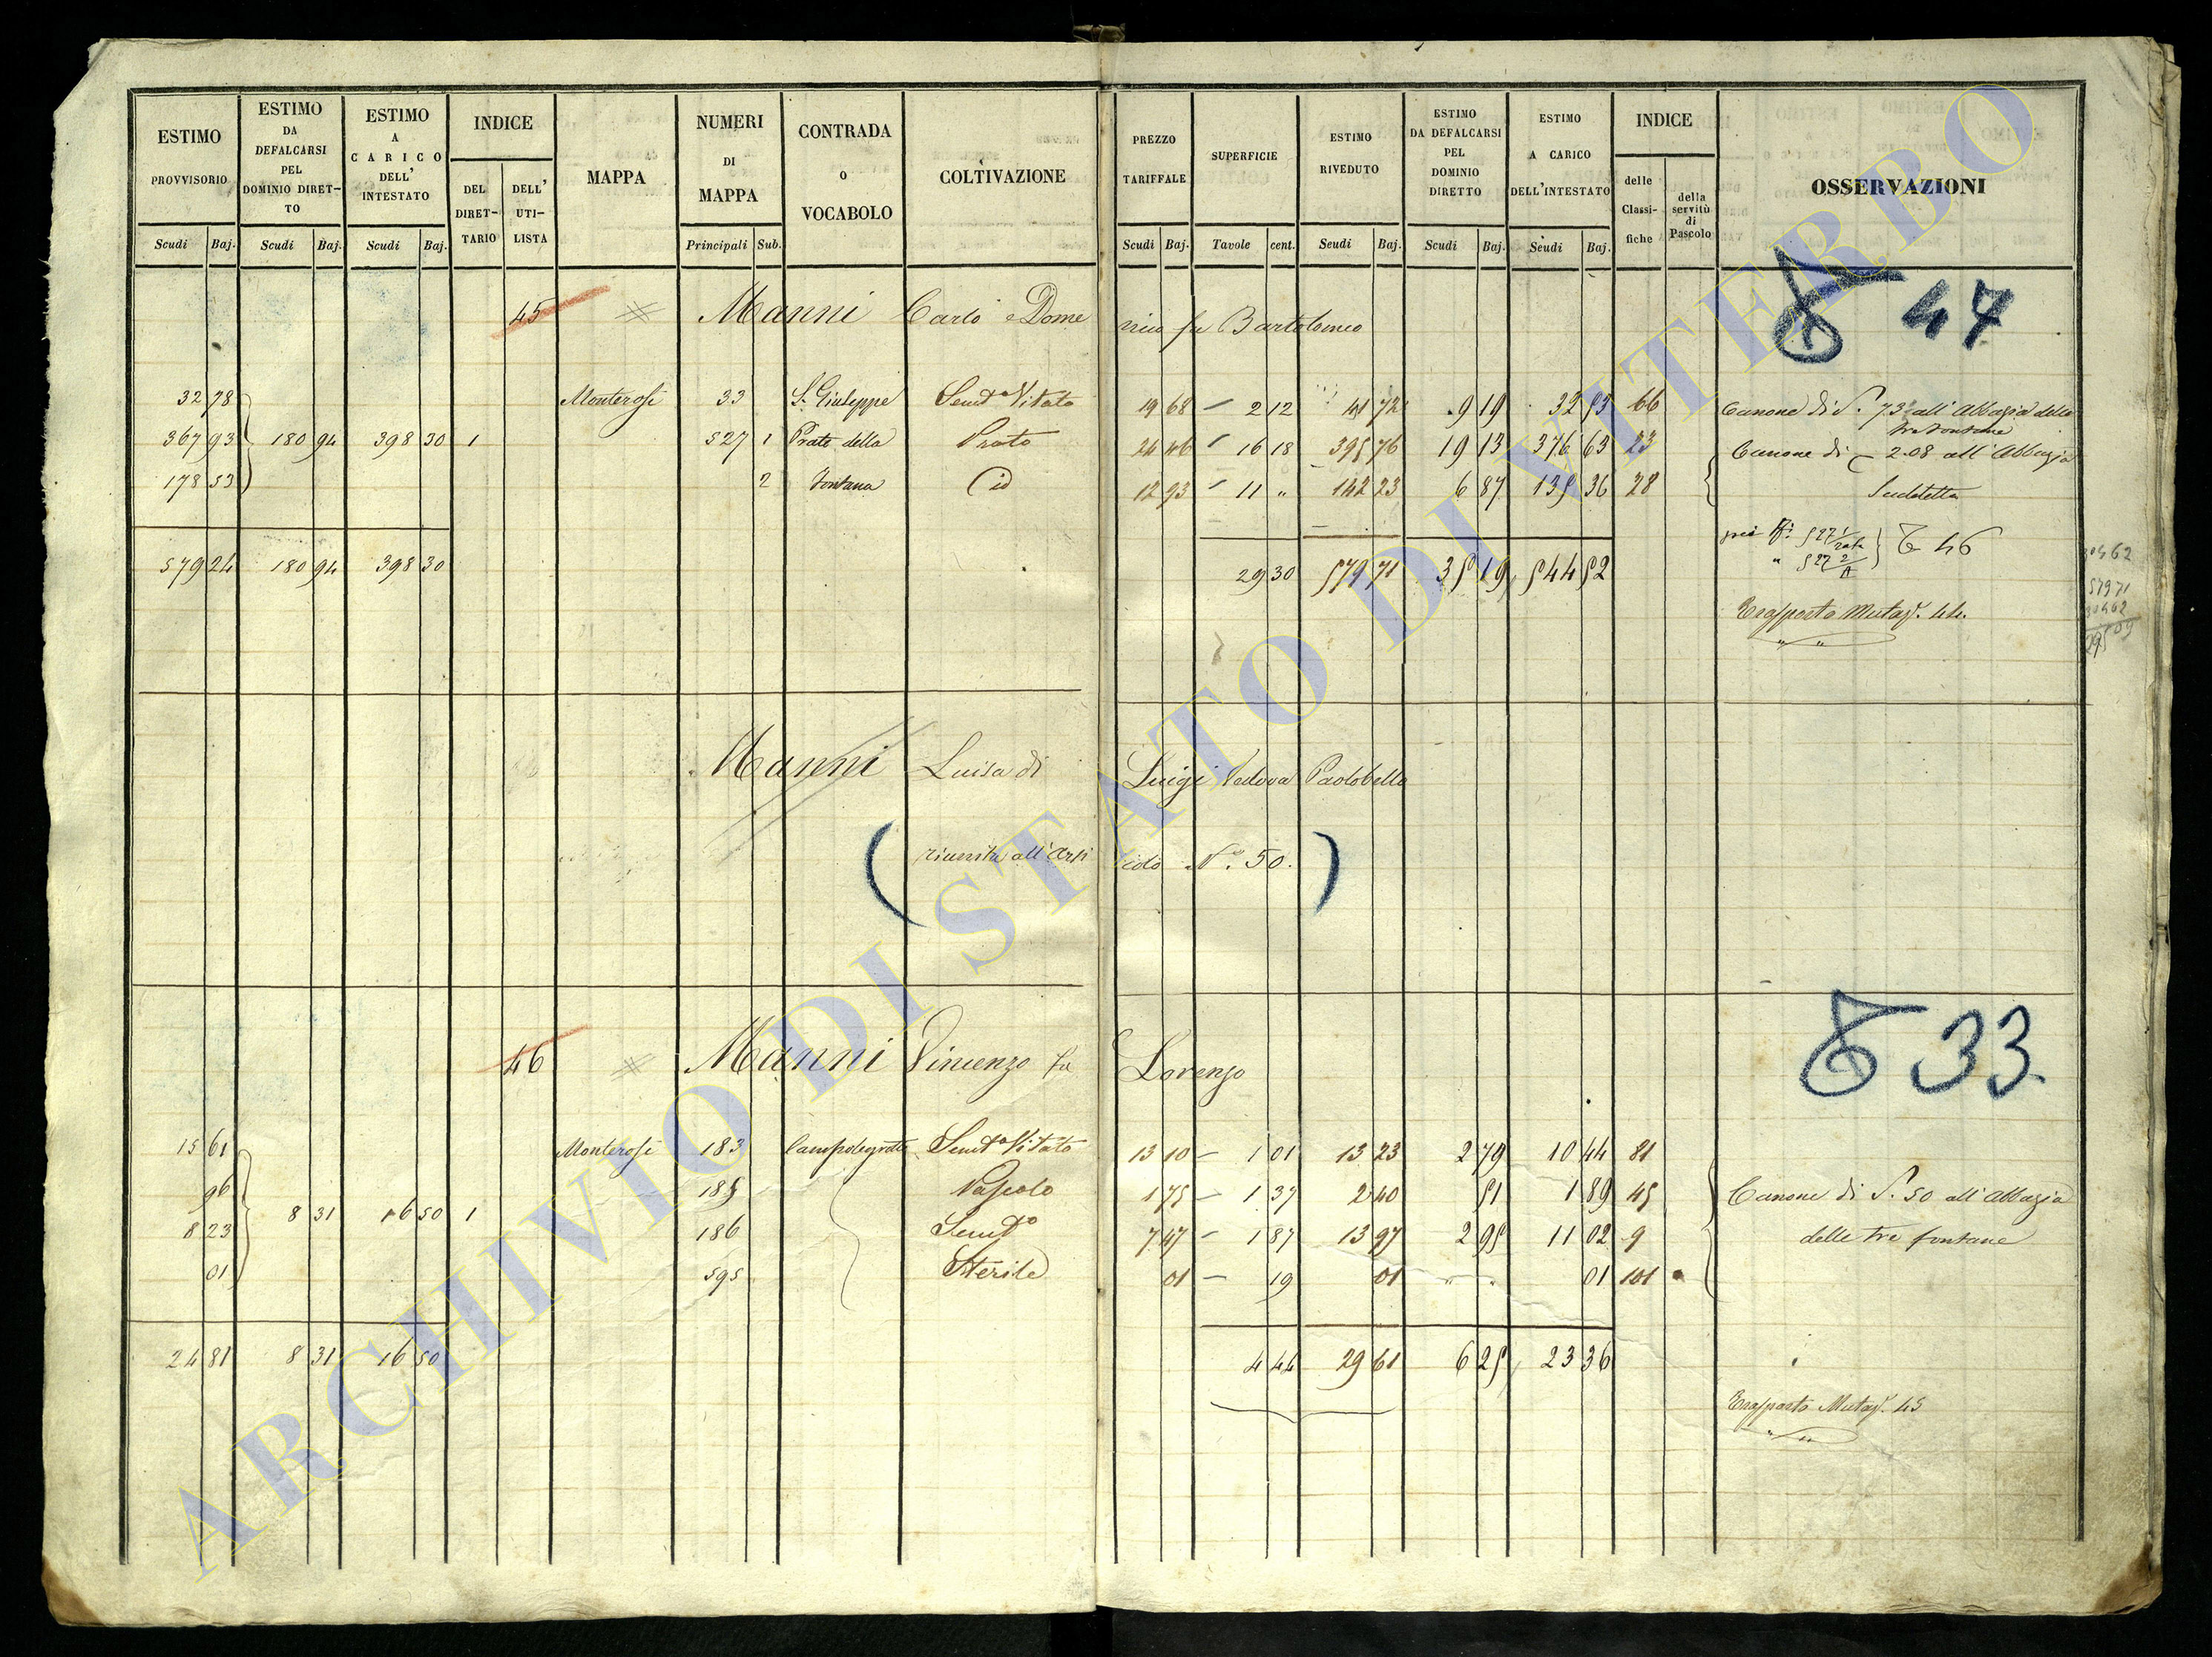 ESTIMO PROVVISORIO Scudi Baj.
ESTIMO DA DEFALCARSI PEL DOMINIO DIRET- TO Scudi Baj.
ESTIMO A CARICO DELL' INTESTATO Scudi Baj.
INDICE DEL DIRET- TARIO DELL' UTI- LISTA
MAPPA
NUMERI DI MAPPA Principali Sub.
CONTRADA O VOCABOLO
COLTIVAZIONE
PREZZO TARIFFALE Scudi Baj.
SUPERFICIE Tavole cent.
ESTIMO RIVEDUTO Scudi Baj.
ESTIMO DA DEFALCARSI PEL DOMINIO DIRETTO Scudi Baj.
ESTIMO A CARICO DELL'INTESTATO Scudi Baj.
INDICE delle Classi- fiche della servitù di Pascolo
OSSERVAZIONI
45 Manni Carlo e Dome nico fu Bartolomeo 47
32 78 Monterosi 33 S. Giuseppe Semto Vitato 19 68 2 12 41 72 9 19 32 53 66 Canone di S. 73 all'Abbazia delle
tre fontane
367 93 180 94 398 30 1 527 1 Prato della Prato 24 46 16 18 395 76 19 13 376 63 23 Canone di 2.08 all'Abbazia
178 53 2 Fontana Id 12 93 11 " 142 23 6 87 135 36 28 Suddetta
527 1/rata
" 527 2/A 46
579 24 180 94 398 30 29 30 579 71 35 19 544 52
Trasporto Mutaz. 44.
57971
Manni Luisa di Luigi Vedova Paolobello
(riunita all'Arti colo N.° 50.)
46 Manni Vincenzo fu Lorenzo 33.
15 61 Monterosi 183 Semto Vitato 13 10 1 01 13 23 2 79 10 44 81
96 185 Pascolo 1 75 1 37 2 40 51 1 89 45 Canone di S. 50 all'Abbazia
8 23 8 31 16 50 1 186 Semto 7 47 1 87 13 97 2 95 11 02 9 delle tre fontane
01 595 Sterile 01 19 01 " " 01 101
24 81 8 31 16 50 4 44 29 61 6 25 23 36
Trasporto Mutaz. 45
ARCHIVIO DI STATO DI VITERBO